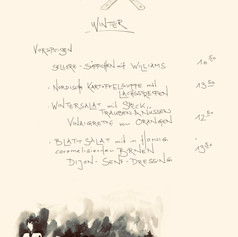 WINTER
VORSPEISEN
SELLERIE-SÜPPCHEN MIT WILLIAMS 10.50
- NORDISCHE KARTOFFELSUPPE MIT 13.50
LACHSSTREIFEN
- WINTERSALAT MIT SPECK,
TRAUBEN & NÜSSEN 12.50
VINAIGRETTE VON ORANGEN
- BLATTSALAT mit in Honig
caramelisierten BIRNEN
DIJON-SENF-DRESSING